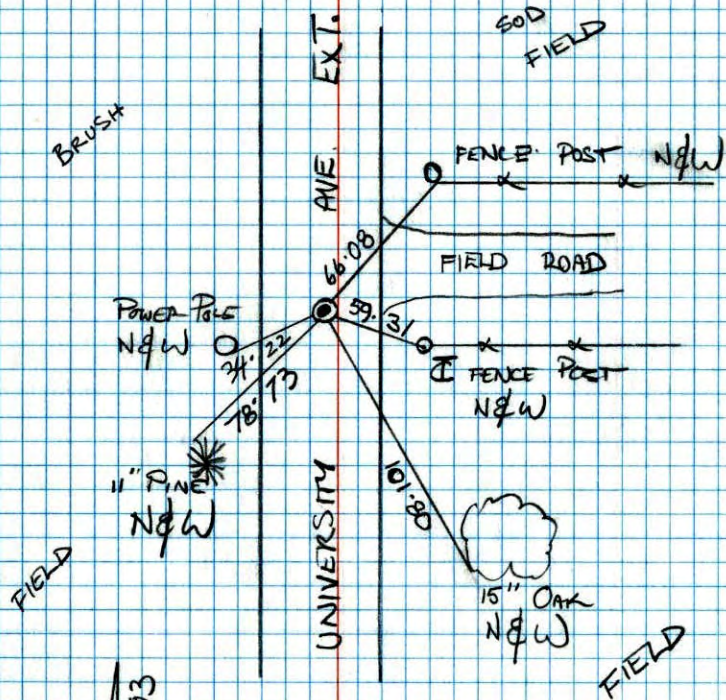 SOD
FIELD
BRUSH
UNIVERSITY AVE. EXT.
FENCE POST N&W
66.08
FIELD ROAD
POWER POLE
N&W
59.31
FENCE POST
N&W
78.73
11" PINE
N&W
101.80
15" OAK
N&W
FIELD
FIELD